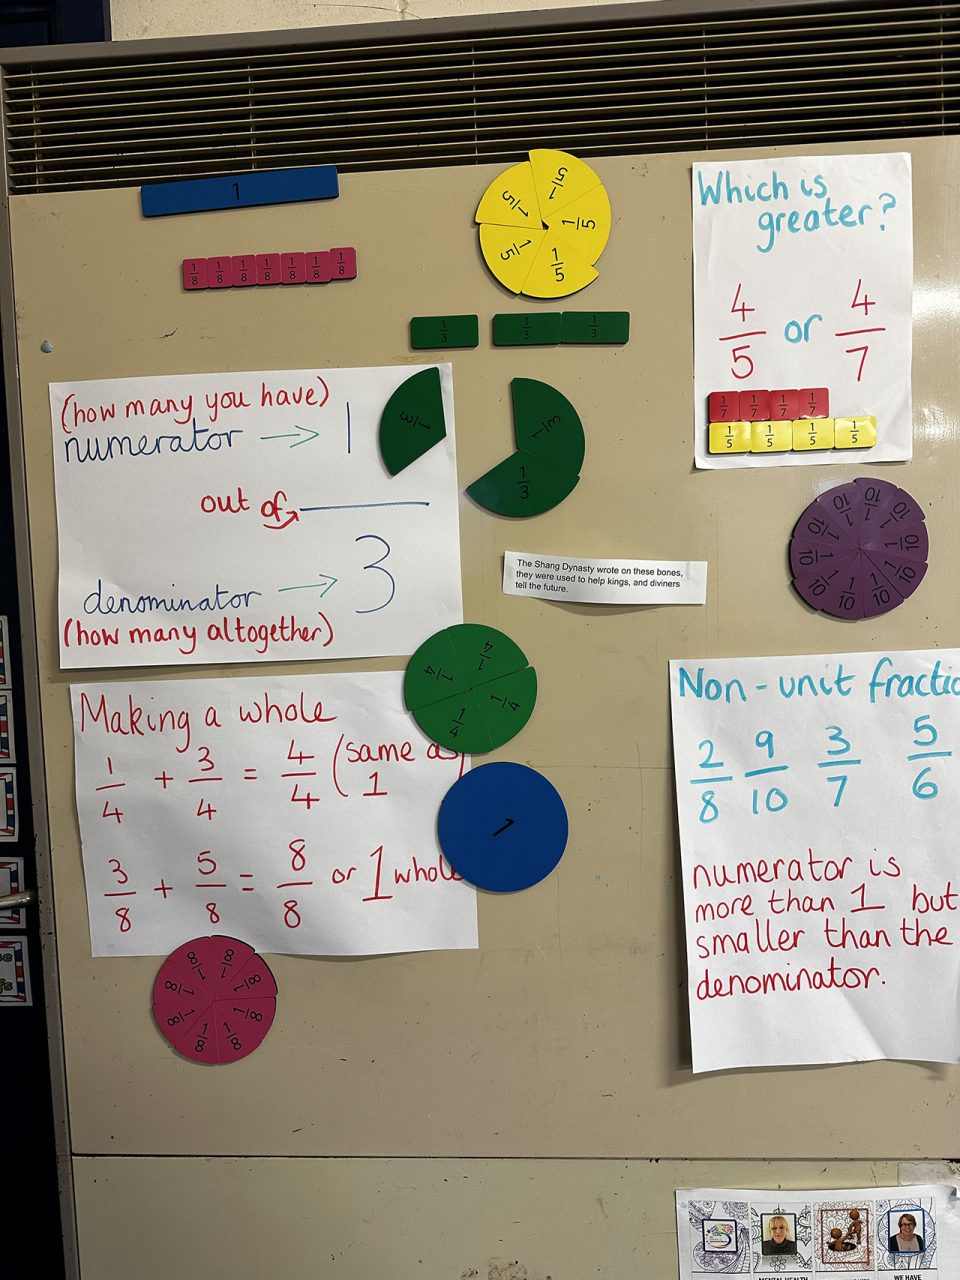 1
1/8 1/8 1/8 1/8 1/8 1/8 1/8
1/5 1/5 1/5 1/5 1/5
1/3 1/3 1/3
Which is
greater?
4/5 or 4/7
1/7 1/7 1/7 1/7
1/5 1/5 1/5 1/5
(how many you have)
numerator → 1
out of
denominator → 3
(how many altogether)
1/3
1/3 1/3
The Shang Dynasty wrote on these bones,
they were used to help kings, and diviners
tell the future.
1/10 1/10 1/10 1/10 1/10 1/10 1/10 1/10 1/10 1/10
1/4 1/4 1/4 1/4
Making a whole
1/4 + 3/4 = 4/4 (same as
1
3/8 + 5/8 = 8/8 or 1 whole
1
1/8 1/8 1/8 1/8 1/8 1/8 1/8 1/8
Non-unit fractio
2/8 9/10 3/7 5/6
numerator is
more than 1 but
smaller than the
denominator.
MENTAL HEALTH
WE HAVE